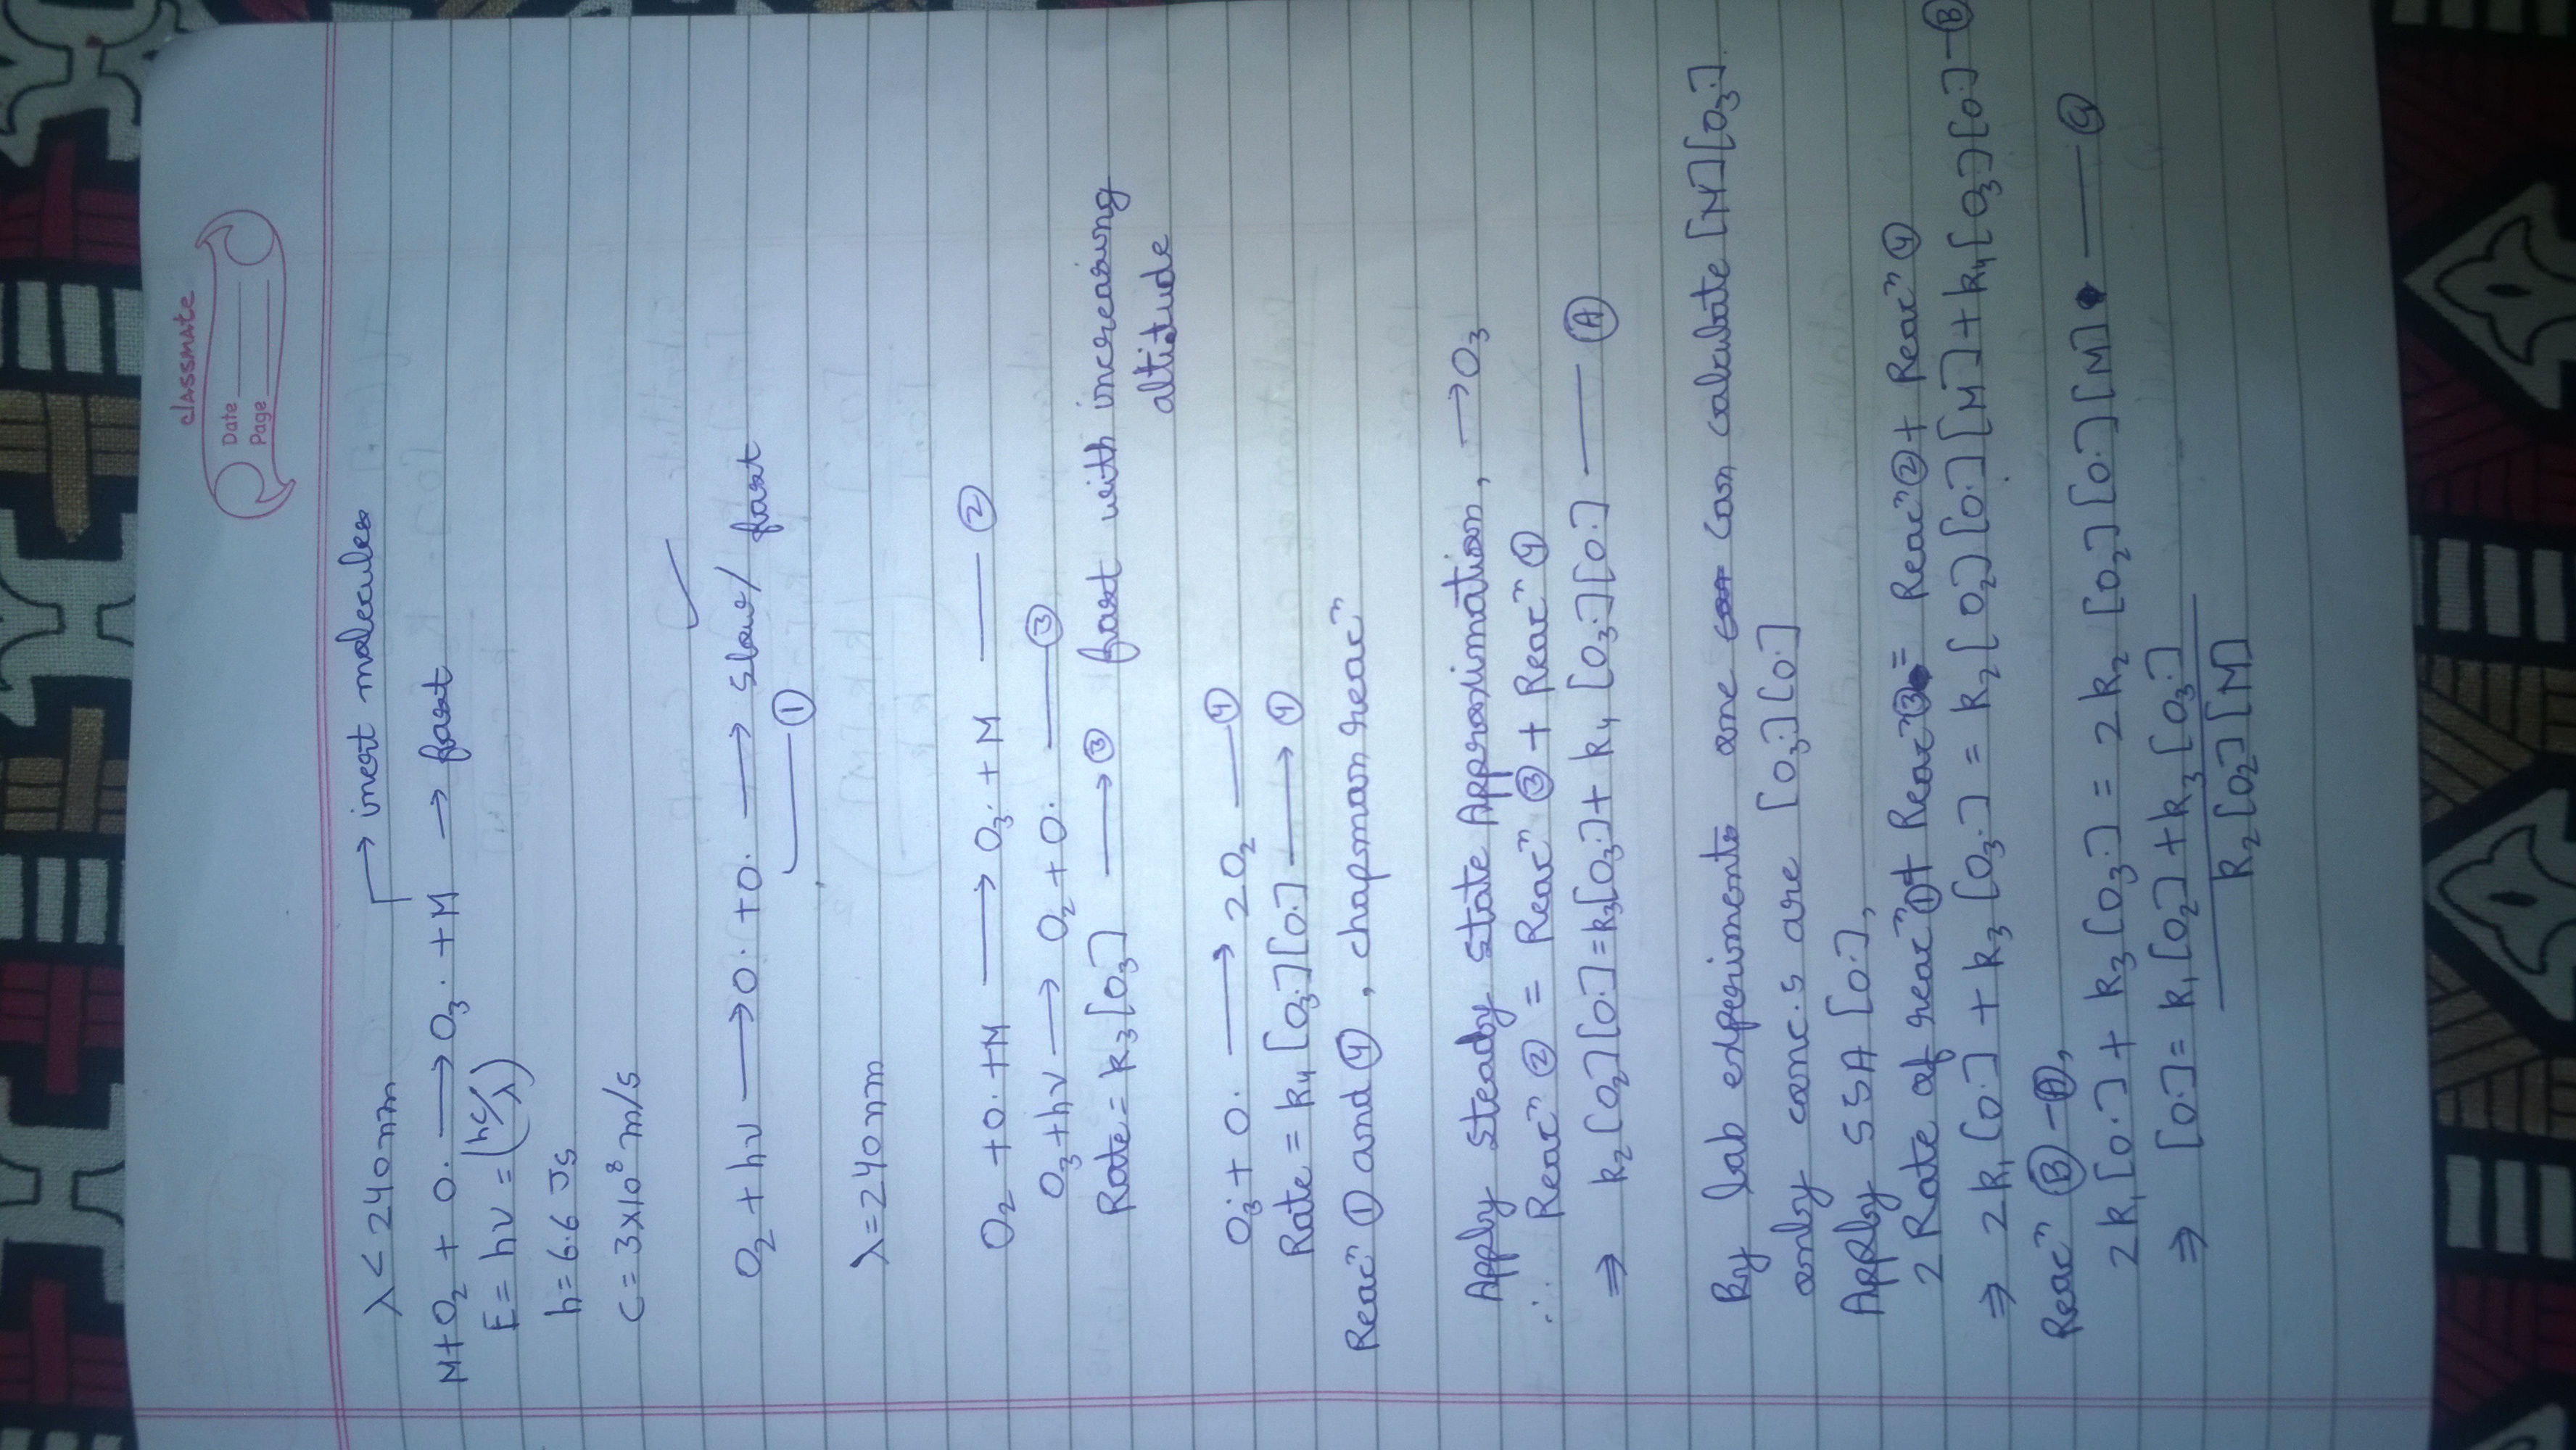 classmate
Date
Page
λ < 240 nm → inert molecules
M + O₂ + O. ⟶ O₃. + M → fast
E = hν = (hc/λ)
h = 6.6 Js
c = 3×10⁸ m/s
O₂ + hν ⟶ O. + O. ⟶ slow/ fast
①
λ = 240 nm
O₂ + O. + M ⟶ O₃. + M — ②
O₃ + hν ⟶ O₂ + O. — ③
Rate = k₃[O₃] → ③ fast with increasing
altitude
O₃. + O. ⟶ 2O₂ — ④
Rate = k₄ [O₃.][O.] ⟶ ④
Reacⁿ ① and ④, chapman reacⁿ
Apply steady state Approximation, → O₃
∴ Reacⁿ ② = Reacⁿ ③ + Reacⁿ ④
⇒ k₂[O₂][O.] = k₃[O₃.] + k₄ [O₃.][O.] — Ⓐ
By lab experiments one can calculate [M][O₃.]
only conc.s are [O₃.][O.]
Apply SSA [O.],
2 Rate of reacⁿ① + Reacⁿ③ = Reacⁿ② + Reacⁿ④
⇒ 2k₁[O.] + k₃[O₃.] = k₂[O₂][O.][M] + k₄[O₃.][O.] — Ⓑ
Reacⁿ Ⓑ - Ⓐ,
2k₁[O.] + k₃[O₃.] = 2k₂ [O₂][O.][M] — ⓒ
⇒ [O.] = k₁[O₂] + k₃[O₃.]
k₂[O₂][M]